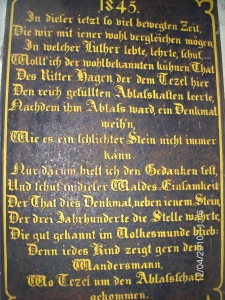 1845.
In dieser ietzt so viel bewegten Zeit,
Die wir mit jener wohl vergleichen mögen
In welcher Luther lebte, lehrte, schuf....
Wollt' ich der wohlbekannten kühnen That
Des Ritter Hagen der dem Tezel hier
Den reich gefüllten Ablaskasten leerte,
Nachdem ihm Ablass ward, ein Denkmal
weih'n,
Wie es ein schlichter Stein nicht immer
kann.
Nur darum hielt ich den Gedanken fest,
Und schuf in dieser Waldes-Einsamkeit
Der That dies Denkmal, neben jenem Stein,
Der drei Jahrhunderte die Stelle wahrte,
Die gut gekannt im Volkesmunde blieb:
Denn iedes Kind zeigt gern dem
Wandersmann,
Wo Tezel um den Ablasschatz
gekommen.
12/04/2010